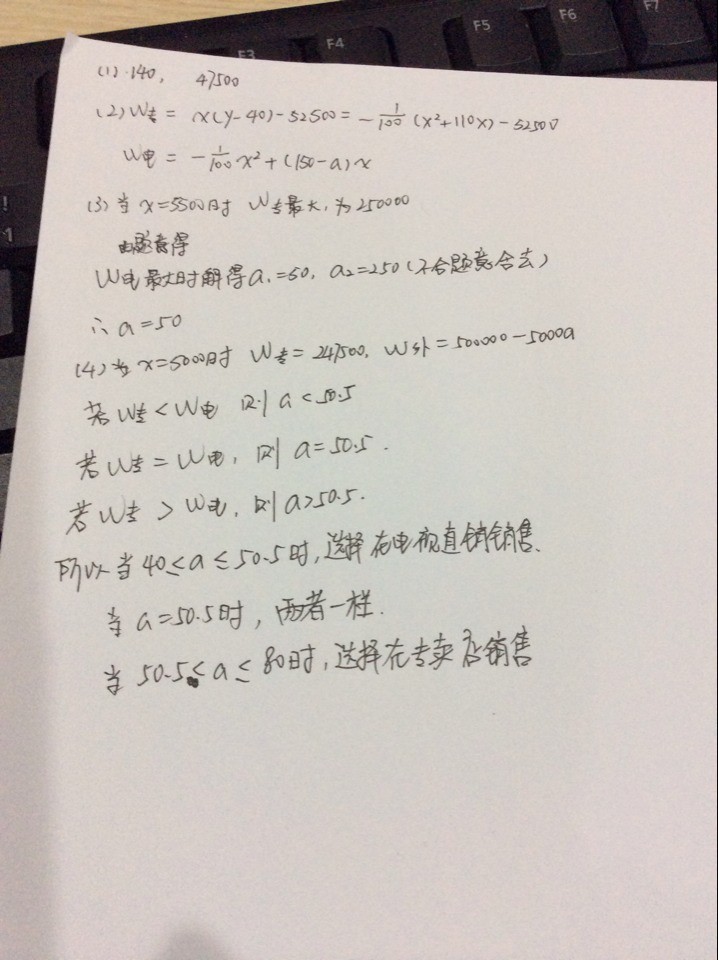 F3
F4
F5
F6
F7
!
1
(1)·140, 47500
(2)W专 = x(y-40)-52500 = -1/100 (x²+110x)-52500
W电 = -1/100 x²+(150-a)x
(3)当 x=5500时 W专最大,为250000
由题意得
W电最大时解得a₁=50, a₂=250(不合题意舍去)
∴ a=50
(4)当 x=5000时 W专=247500, W外=500000-5000a
若 W专<W电 则 a<50.5
若 W专=W电, 则 a=50.5.
若 W专>W电, 则 a>50.5.
所以当 40≤a≤50.5时,选择在电视直销销售.
当 a=50.5时,两者一样.
当 50.5≤a≤80时,选择在专卖店销售